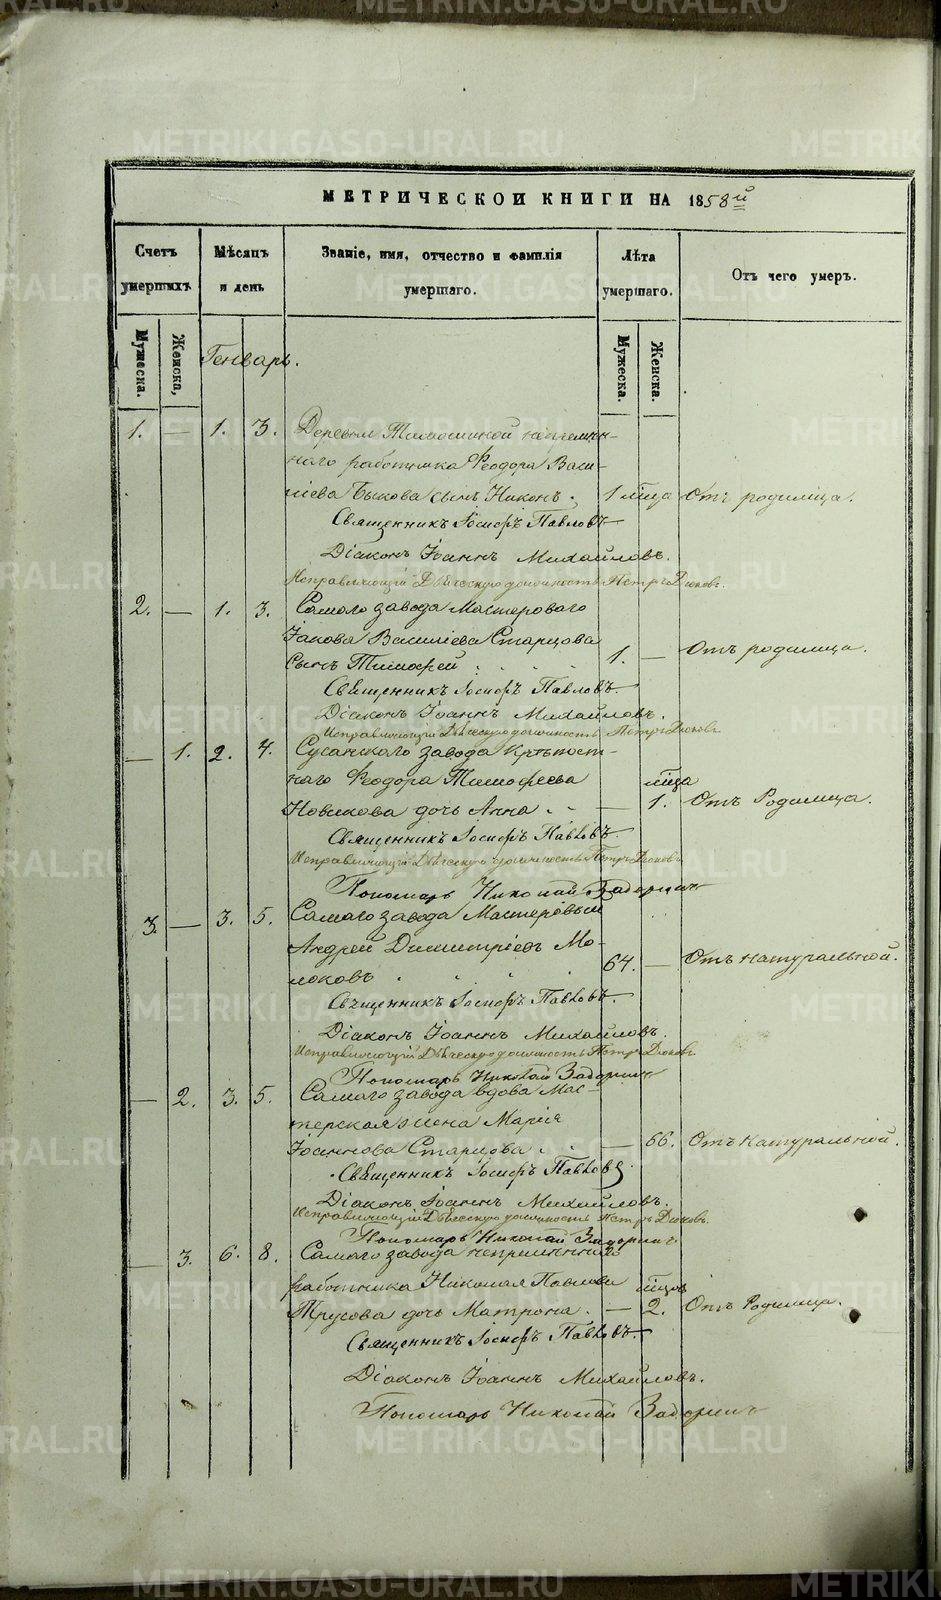 МЕТРИЧЕСКОЙ КНИГИ НА 1858й
Счетъ умершихъ
Мѣсяцъ и день
Званіе, имя, отчество и фамилія умершаго.
Лѣта умершаго.
Отъ чего умеръ.
Мужеска.
Женска,
Мужеска.
Женска.
Генварь.
1. — 1. 3. Деревни
наго работника Ѳеодора Васи-
ліева Быкова сынъ Никонъ. 1 мѣца Отъ родимца.
Священникъ Іосифъ Павловъ
Діаконъ Іоаннъ Михайловъ.
Исправляющій Дьяческую должность Петръ
2. — 1. 3. Самаго завода Мастероваго
Іакова Василіева Старцова
сынъ Тимофей 1. — Отъ родимца.
Священникъ Іосифъ Павловъ.
Діаконъ Іоаннъ Михайловъ.
Исправляющій Дьяческую должность Петръ
— 1. 2. 4. Сусанскаго завода Крѣпост-
наго Ѳеодора Тимофеева мѣца
Новикова дочь Анна — 1. Отъ Родимца.
Священникъ Іосифъ Павловъ.
Исправляющій Дьяческую должность Петръ
Пономарь Николай Задоринъ
3. — 3. 5. Самаго завода Мастеровый
Андрей Димитріевъ Мо-
локовъ 64. — Отъ натуральной.
Священникъ Іосифъ Павловъ.
Діаконъ Іоаннъ Михайловъ.
Исправляющій Дьяческую должность Петръ
Пономарь Николай Задоринъ
— 2. 3. 5. Самаго завода вдова Мас-
терская жена Марія
Іоаннова Старцова — 66. Отъ натуральной.
Священникъ Іосифъ Павловъ
Діаконъ Іоаннъ Михайловъ.
Исправляющій Дьяческую должность Петръ
Пономарь Николай Задоринъ
— 3. 6. 8. Самаго завода
работника Николая Павлова мѣцов
Трусова дочь Матрона. — 2. Отъ Родимца.
Священникъ Іосифъ Павловъ.
Діаконъ Іоаннъ Михайловъ.
Пономарь Николай Задоринъ
METRIKI.GASO-URAL.RU